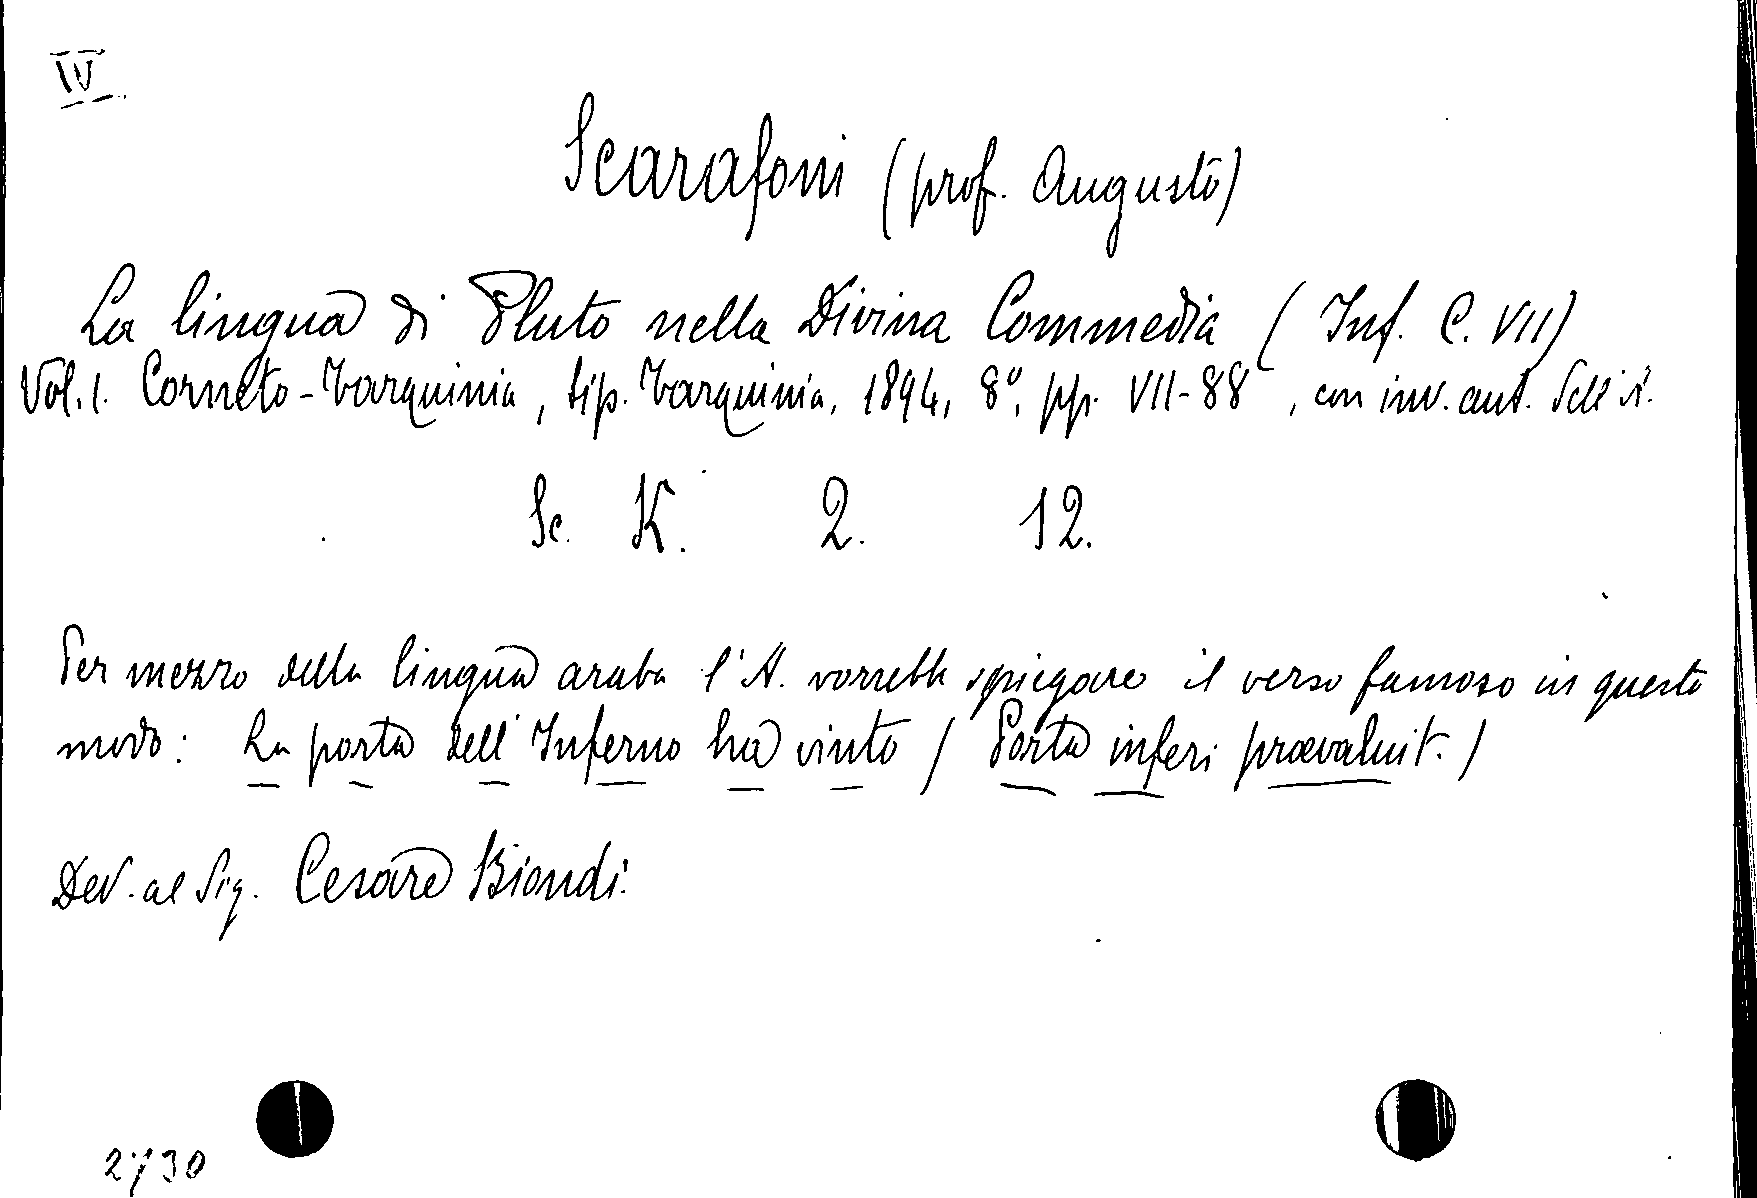 IV
Scarafoni (prof. Augusto)
La lingua di Pluto nella Divina Commedia (Inf. C. VII)
Vol. 1. Corneto-Tarquinia, tip. Tarquinia, 1894, 8°, pp. VII-88, con inv. aut. dell'A.
Sc. K. 2. 12.
Per mezzo della lingua araba l'A. vorrebbe spiegare il verso famoso in questo
modo: La porta dell'Inferno ha vinto (Porta inferi praevaluit.)
Ded. al Sig. Cesare Biondi.
2730